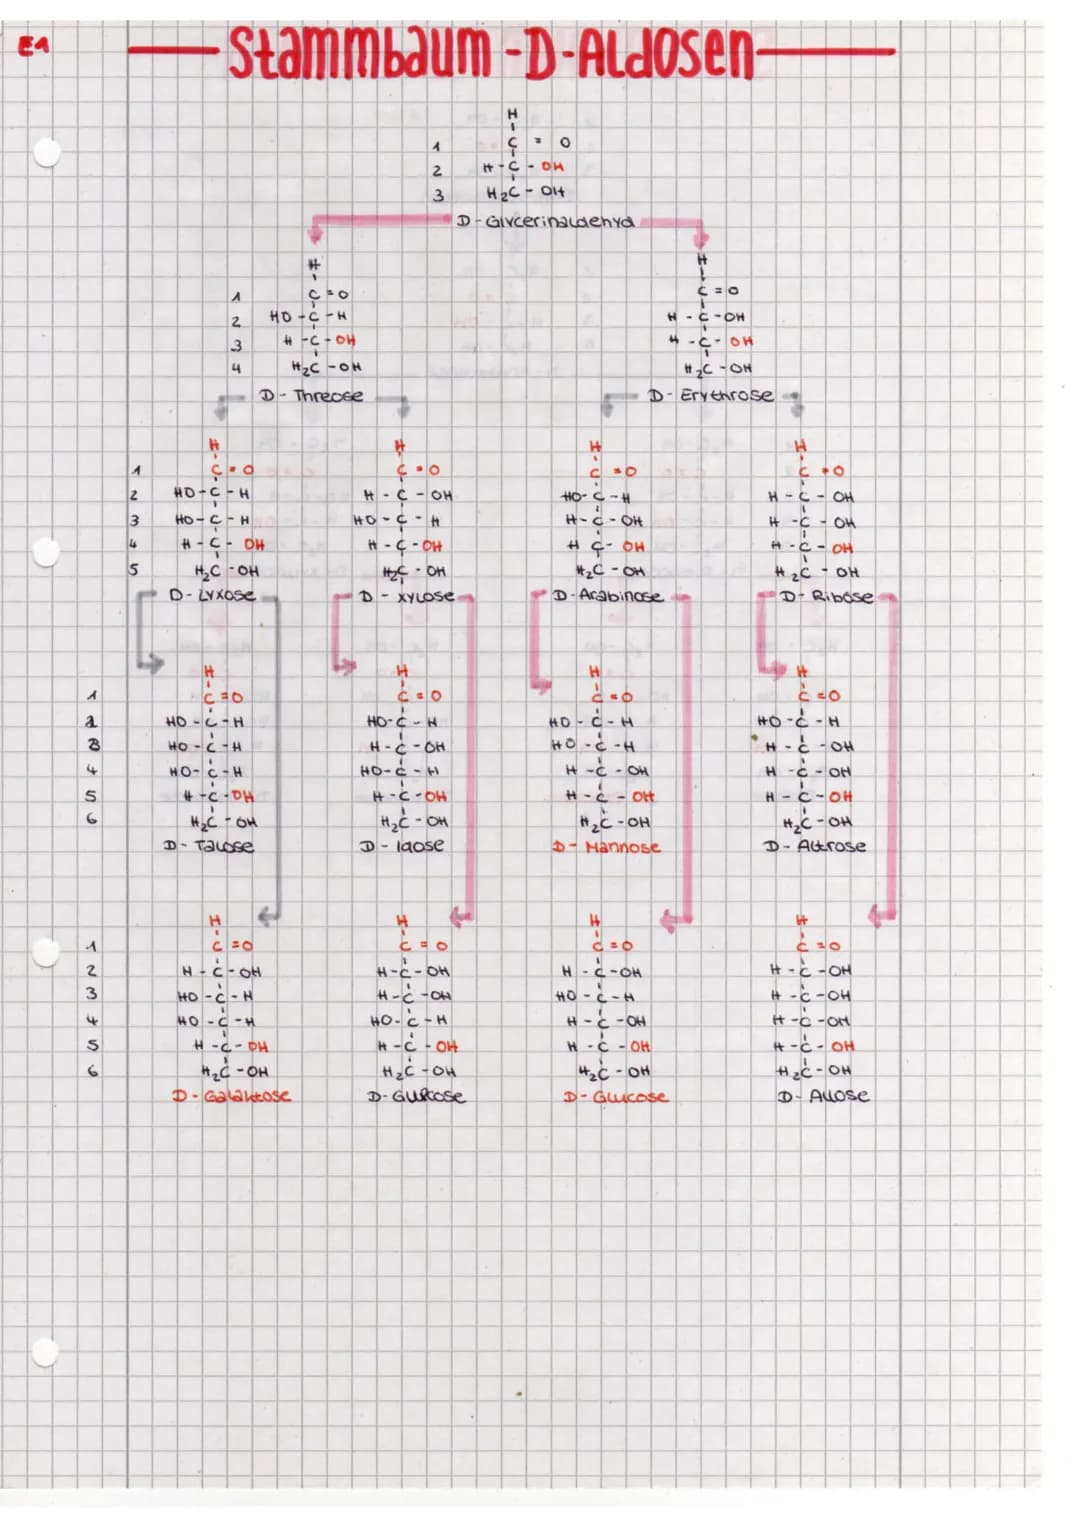 E1
Stammbaum-D-Aldosen
H
1 C = O
2 H-C-OH
3 H2C-OH
D-Glycerinaldehyd
H H
1 C=O C=O
2 HO-C-H H-C-OH
3 H-C-OH H-C-OH
4 H2C-OH H2C-OH
D-Threose D-Erythrose
H H H H
1 C=O C=O C=O C=O
2 HO-C-H H-C-OH HO-C-H H-C-OH
3 HO-C-H HO-C-H H-C-OH H-C-OH
4 H-C-OH H-C-OH H C-OH H-C-OH
5 H2C-OH H2C-OH H2C-OH H2C-OH
D-Lyxose D-Xylose D-Arabinose D-Ribose
H H H H
1 C=O C=O C=O C=O
2 HO-C-H HO-C-H HO-C-H HO-C-H
3 HO-C-H H-C-OH HO-C-H H-C-OH
4 HO-C-H HO-C-H H-C-OH H-C-OH
5 H-C-OH H-C-OH H-C-OH H-C-OH
6 H2C-OH H2C-OH H2C-OH H2C-OH
D-Talose D-Idose D-Mannose D-Altrose
H H H H
1 C=O C=O C=O C=O
2 H-C-OH H-C-OH H-C-OH H-C-OH
3 HO-C-H H-C-OH HO-C-H H-C-OH
4 HO-C-H HO-C-H H-C-OH H-C-OH
5 H-C-OH H-C-OH H-C-OH H-C-OH
6 H2C-OH H2C-OH H2C-OH H2C-OH
D-Galaktose D-Gulose D-Glucose D-Allose